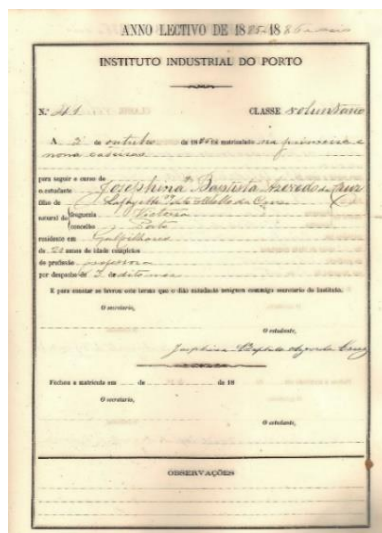 ANNO LECTIVO DE 1885-1886
INSTITUTO INDUSTRIAL DO PORTO
N.º 41 CLASSE voluntario
A 2 de outubro de 1885 foi matriculado na primeira e
nona cadeiras
para seguir o curso de
o estudante Josephina Baptista
filho de
natural de freguezia Victoria
concelho Porto
residente em
de 20 annos de idade completos
de profissão professora
por despacho de 2 do dito mez
E para constar se lavrou este termo que o dito estudante assignou commigo secretario do Instituto.
O secretario,
O estudante,
Josephina Baptista Cruz
Fechou a matricula em de de 18
O secretario,
O estudante,
OBSERVAÇÕES